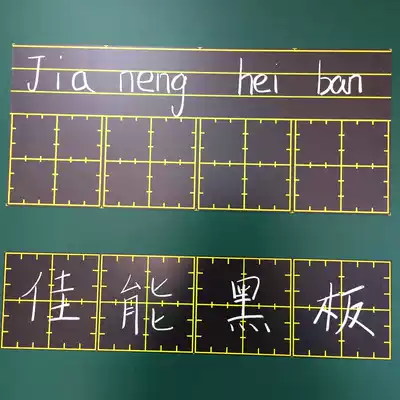 Jia neng hei ban
佳能黑板